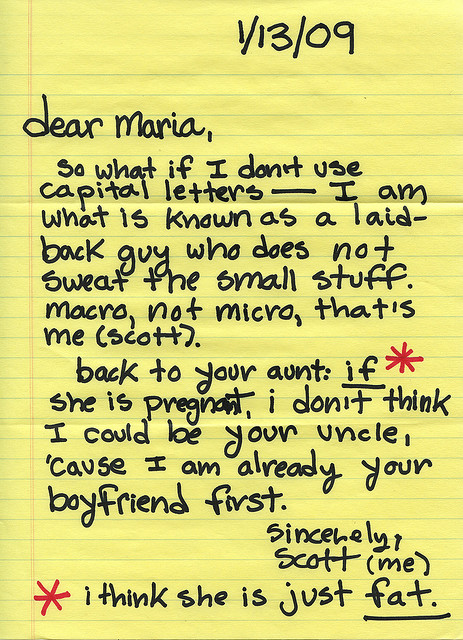 1/13/09
dear maria,
So what if I don't use
capital letters — I am
what is known as a laid-
back guy who does not
sweat the small stuff.
macro, not micro, that's
me (scott).
back to your aunt: if *
she is pregnant, i don't think
I could be your uncle,
'cause I am already your
boyfriend first.
sincerely,
scott (me)
* i think she is just fat.